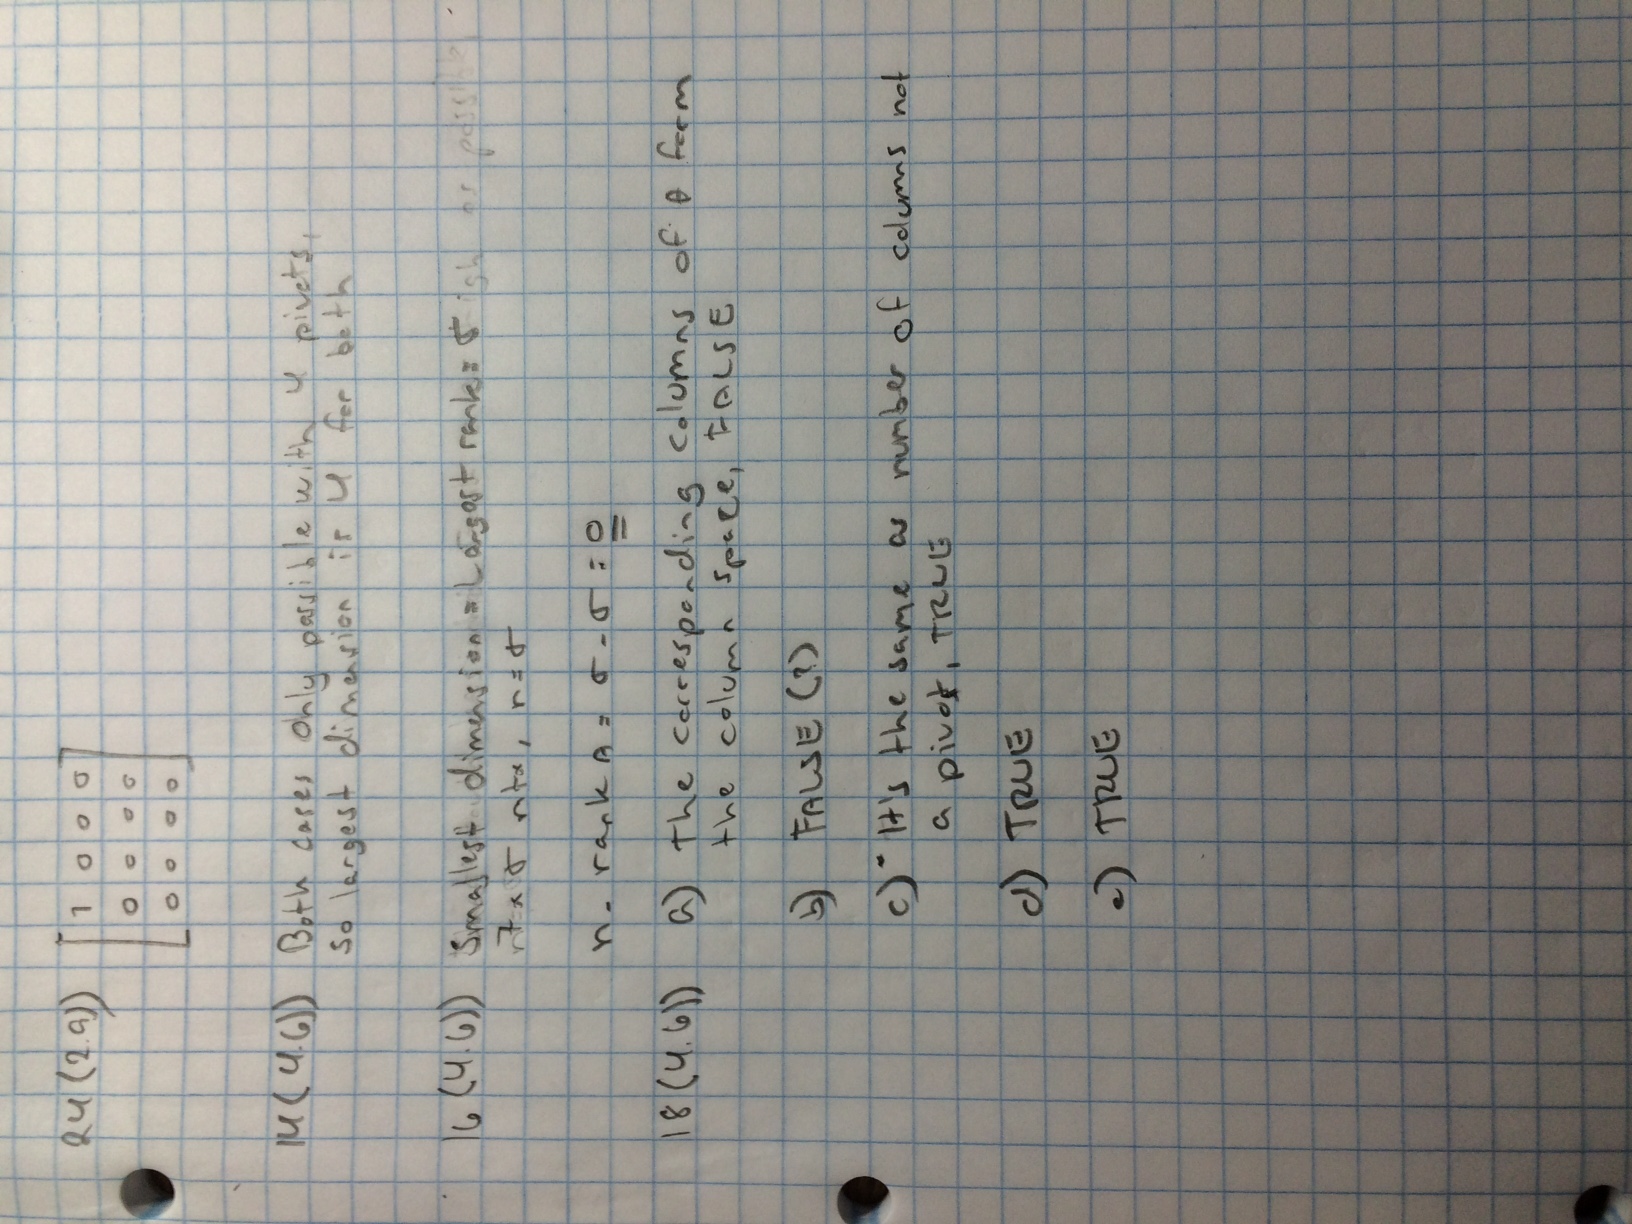 24 (2.9)) [ 1 0 0 0
0 0 0 0
0 0 0 0 ]
14 (4.6)) Both cases only possible with 4 pivots,
so largest dimension is 4 for both
16 (4.6)) Smallest dimension = Largest rank = 5
7 x 5 n = 5
n - rank A = 5 - 5 = 0
18 (4.6)) a) the corresponding columns of A form
the column space, FALSE
b) FALSE (?)
c) It's the same as number of columns not
a pivot, TRUE
d) TRUE
e) TRUE